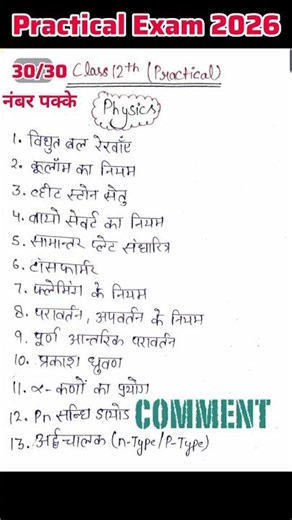 Practical Exam 2026
30/30 Class 12th (Practical)
नंबर पक्के
Physics
1. विधुत बल रेखाएँ
2. कूलॉम का नियम
3. व्हीट स्टोन सेतु
4. बायो सेवर्ट का नियम
5. सामान्तर प्लेट संधारित्र
6. ट्रांसफार्मर
7. फ्लेमिंग के नियम
8. परावर्तन, अपवर्तन के नियम
9. पूर्ण आन्तरिक परावर्तन
10. प्रकाश ध्रुवण
11. α-कणों का प्रयोग
12. Pn सन्धि डायोड COMMENT
13. अर्द्धचालक (n-Type/P-Type)